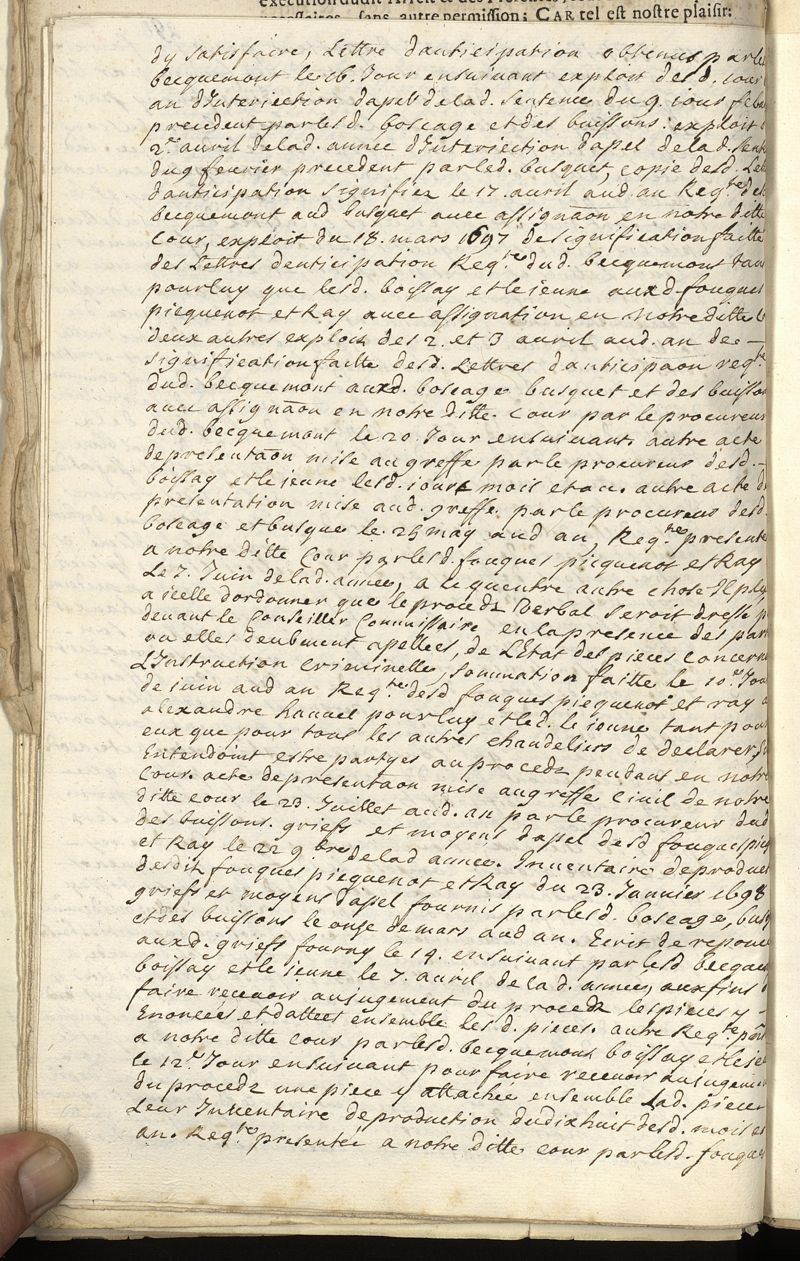 necessaires, sans autre permission; CAR tel est nostre plaisir:
dy satisfaire, Lettre danticipation obtenus par led
becquemont le 16. Jour ensuivant exploit desd. jour
an d'Interiection dapel delad. Sentence du 9. jour
precedent parlesd. boscage et des buissons: exploit
2.e avril delad. annee d'Interiection dapel delad. Sent
du 9 fevrier precedent par led. busquet, copie desd. Let
danticipation signifiez le 17 avril aud. an Req.te de
becquemont aud busquet avec assignaōn en notre ditte
Cour, exploit du 18. mars 1697 de signification faitte
des Lettres danticipation Req.te dud. becquemont tan
pourluy que lesd. boissay et le jeune auxd. fouques
picquenot et Ray avec assignation en notre ditte
deux autres exploits des 2. et 3 avril aud. an de
signification faitte desd. Lettres danticipaōn req.te
dud. becquemont auxd. boscage busquet et des buisson
avec assignaōn en notre ditte. Cour par le procureur
dud. becquemont le 20. Jour ensuivant, autre acte
de presentaōn mise au greffe par le procureur desd.
boissay et le jeune lesd. jour mois et an. autre acte de
presentation mise aud. greffe par le procureur desd.
boscage et busque le 25 may aud an, Req.te presente
a notre ditte Cour par lesd. fouques picquenot et Ray
Le 7. Juin delad. annee, a ce quentre autre chose Il plu
a icelle dordonner que le procedz Verbal seroit dresse p
devant le Conseiller Commissaire en la presence des part
ou elles deubment apellees, de L'Etat des pieces concern
L'Instruction Criminelle, sommation faitte le 10.e Jou
de juin aud an Req.te desd fouques picquenot et ray
alexandre hanuel pourluy et led. le jeune tant pour
eux que pour tous les autres chandeliers de declarer
Entendoint estre partyes au procedz pendant en notre
Cour. acte de presentaōn mise augreffe Civil de notre
ditte cour le 23. Juillet aud. an par le procureur dud
des buissons. griefs et moyens dapel desd fouques picq
et Ray le 22 9.bre delad annee. Inventaire de product
desdits fouques picquenot et Ray du 23. Janvier 1698
griefs et moyens dapel fournis par lesd. boscage, busq
et des buissons le onze de mars aud an. Ecrit de reponce
auxd. griefs fourny le 14. ensuivant par lesd becque
boissay et le jeune le 7. avril de lad. annee, aux fins
faire recevoir au jugement du procedz les pieces y
Enoncees et dattees ensemble lesd. pieces. autre Req.te
a notre ditte cour par lesd. becquemont boissay et le je
le 12.e Jour ensuivant pour faire recevoir aujugemen
du procedz une piece y attachee ensemble Lad. piece
Leur Inventaire de production dudixhuit desd. mois et
an. Req.te presentée a notre ditte cour par lesd. fouque